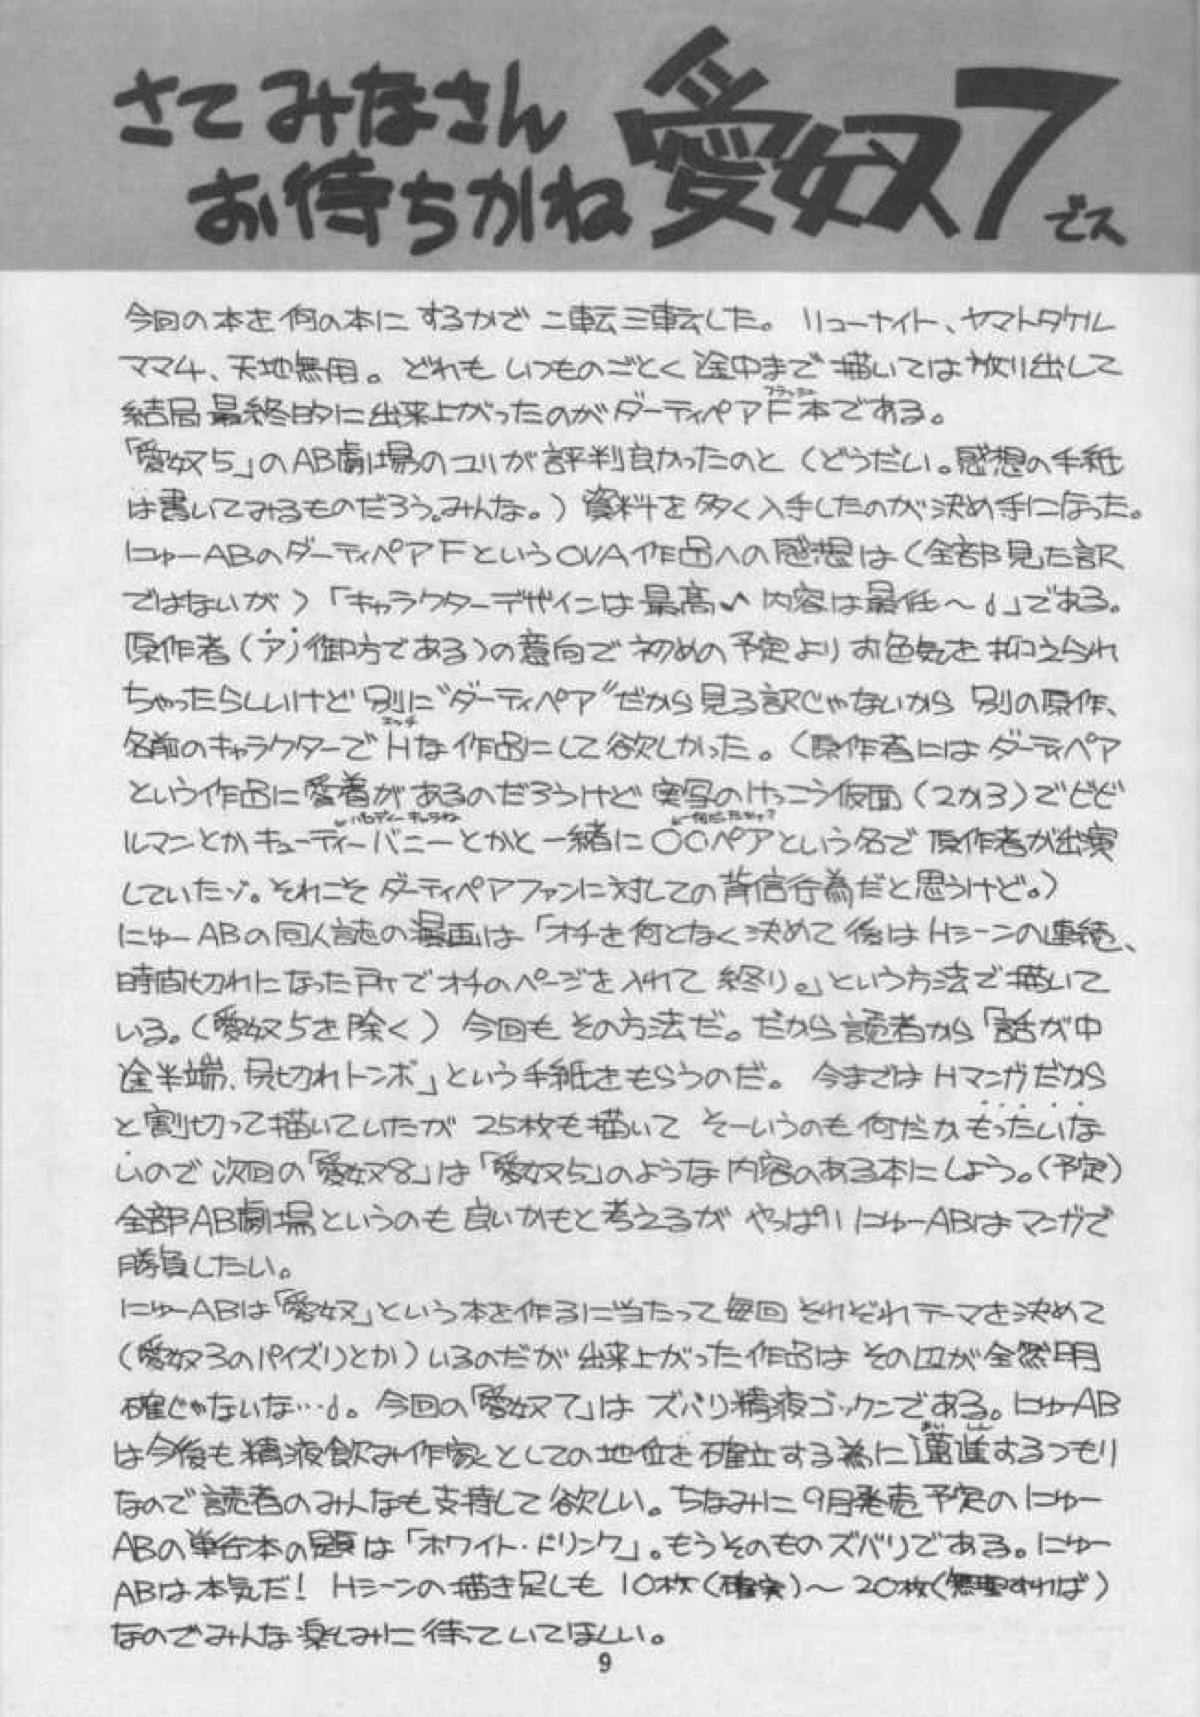 さてみなさん
お待ちかね 愛奴7でス
今回の本を何の本にするかで二転三転した。リューナイト、ヤマトタケル
ママ4、天地無用。どれもいつものごとく途中まで描いては放り出して
フラッシュ
結局最終的に出来上がったのがダーティペアF本である。
「愛奴5」のAB劇場のユリが評判良かったのと(どうだい。感想の手紙
は書いてみるものだろう。みんな。)資料を多く入手したのが決め手になった。
にゅーABのダーティペアFというOVA作品への感想は(全部見た訳
ではないが)「キャラクターデザインは最高 内容は最低〜」である。
原作者(ア)御方である)の意向で初めの予定よりお色気を抑えられ
ちゃったらしいけど別に"ダーティペア"だから見る訳じゃないから別の原作、
エッチ
名前のキャラクターでHな作品にして欲しかった。(原作者にはダーティペア
という作品に愛着があるのだろうけど実写のけっこう仮面(2か3)でどど
←パロディーキャラね ←何だったかな?
ルマンとかキューティーバニーとかと一緒に〇〇ペアという名で原作者が出演
していたゾ。それこそダーティペアファンに対しての背信行為だと思うけど。)
にゅーABの同人誌の漫画は「オチを何となく決めて後はHシーンの連続、
時間切れになった所でオチのページを入れて終り。」という方法で描いて
いる。(愛奴5を除く)今回もその方法だ。だから読者から「話が中
途半端、尻切れトンボ」という手紙をもらうのだ。今まではHマンガだから
と割切って描いていたが25枚も描いてそーいうのも何だかもったいな
いので次回の「愛奴8」は「愛奴5」のような内容のある本にしよう。(予定)
全部AB劇場というのも良いかもと考えるがやっぱりにゅーABはマンガで
勝負したい。
にゅーABは「愛奴」という本を作るに当たって毎回それぞれテーマを決めて
(愛奴3のパイズリとか)いるのだが出来上がった作品はその辺が全然明
確じゃないな…。今回の「愛奴7」はズバリ精液ゴックンである。にゅーAB
まいしん
は今後も精液飲み作家としての地位を確立する為に邁進するつもり
なので読者のみんなも支持して欲しい。ちなみに9月発売予定のにゅー
ABの単行本の題は「ホワイト・ドリンク」。もうそのものズバリである。にゅー
ABは本気だ!Hシーンの描き足しも10枚(確実)〜20枚(無理すれば)
なのでみんな楽しみに待っていてほしい。
9